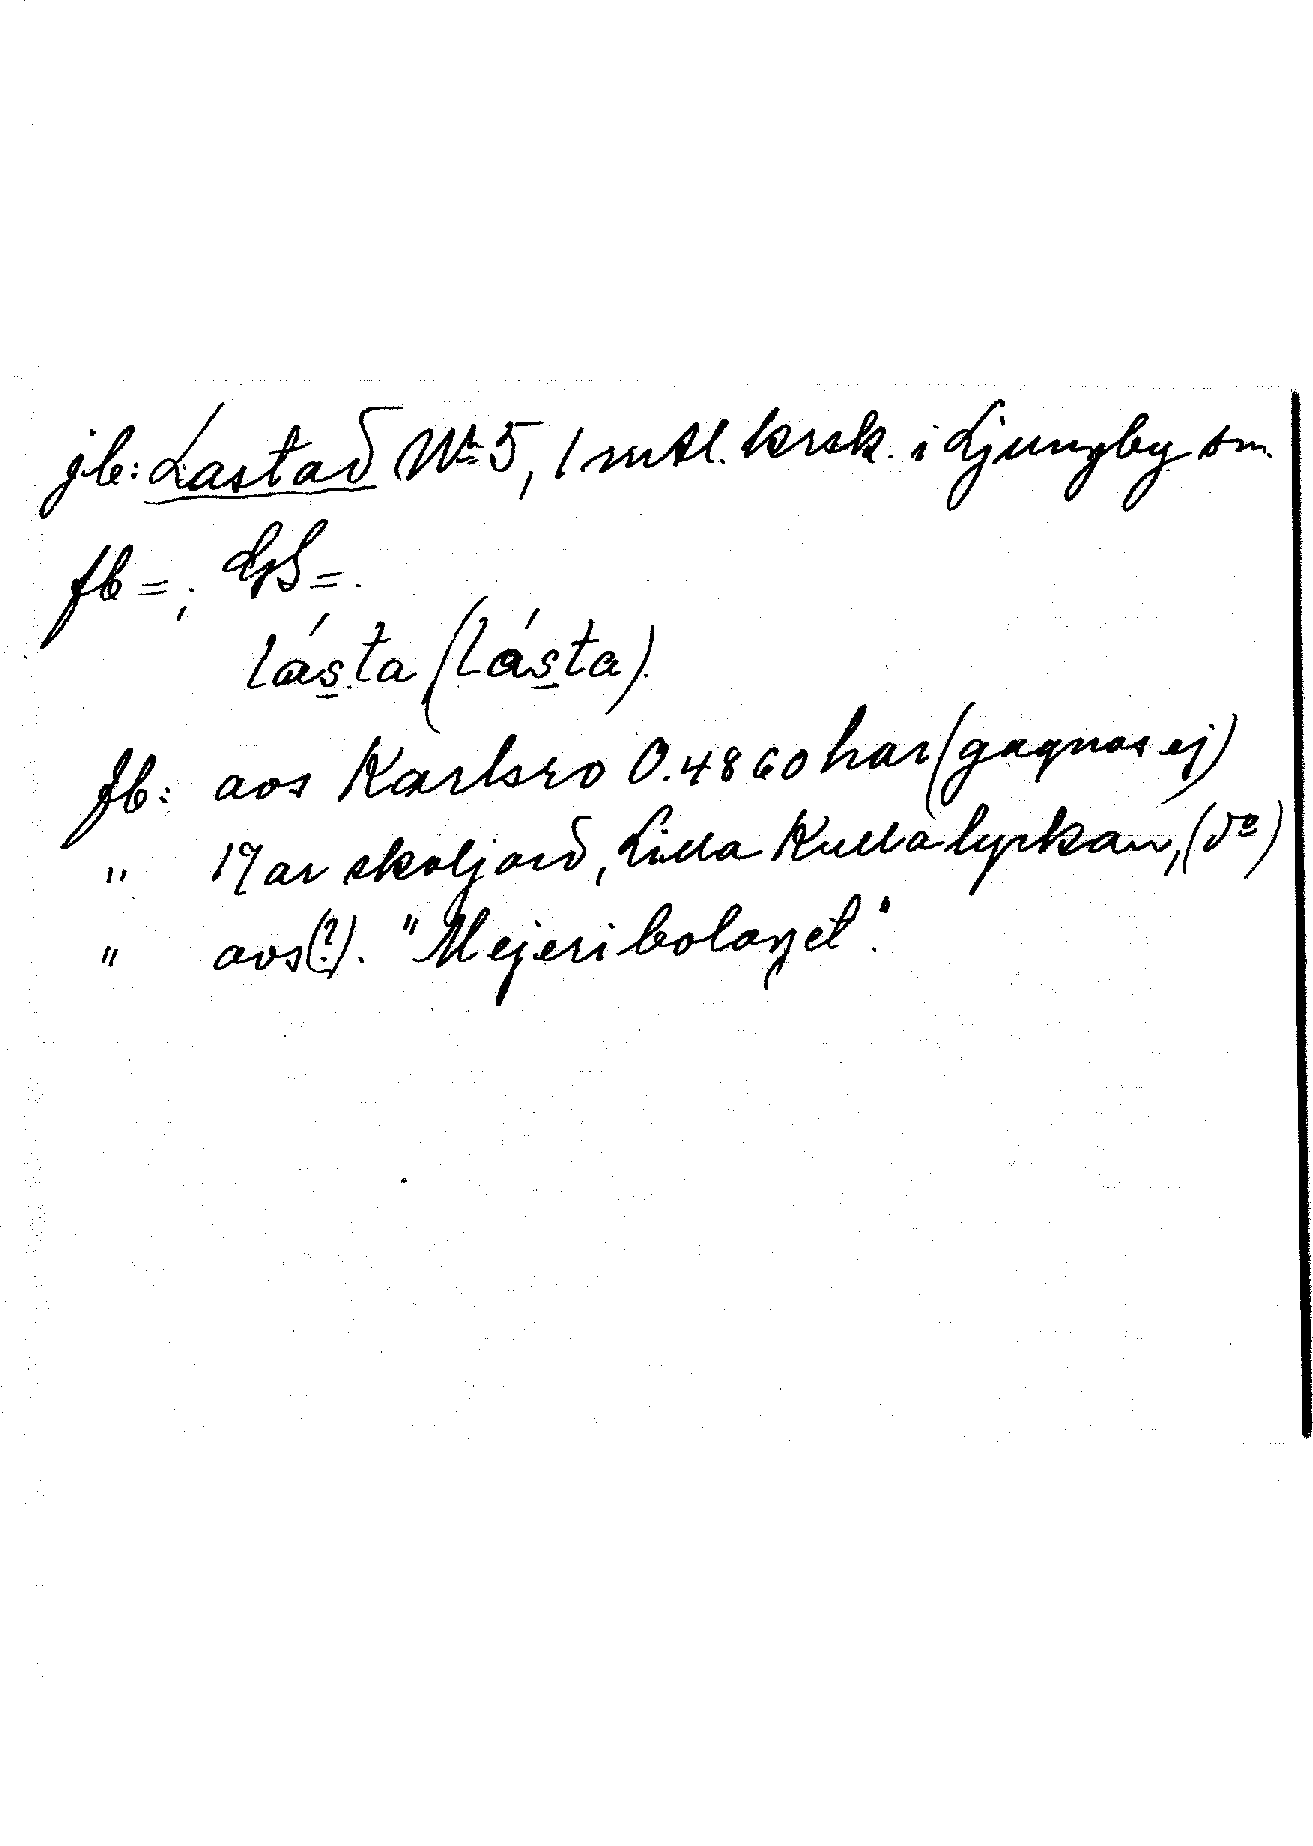 jb: Lastad Nr 5, 1 mtl. krsk. i Ljungby sn.
fb =; GS =.
lásta (lásta).
fb: avs Karlsro 0.4860 har (gagnas ej)
" 17 ar skoljord, Lilla Kulla lyckan, (do)
" avs (?). "Mejeribolaget".